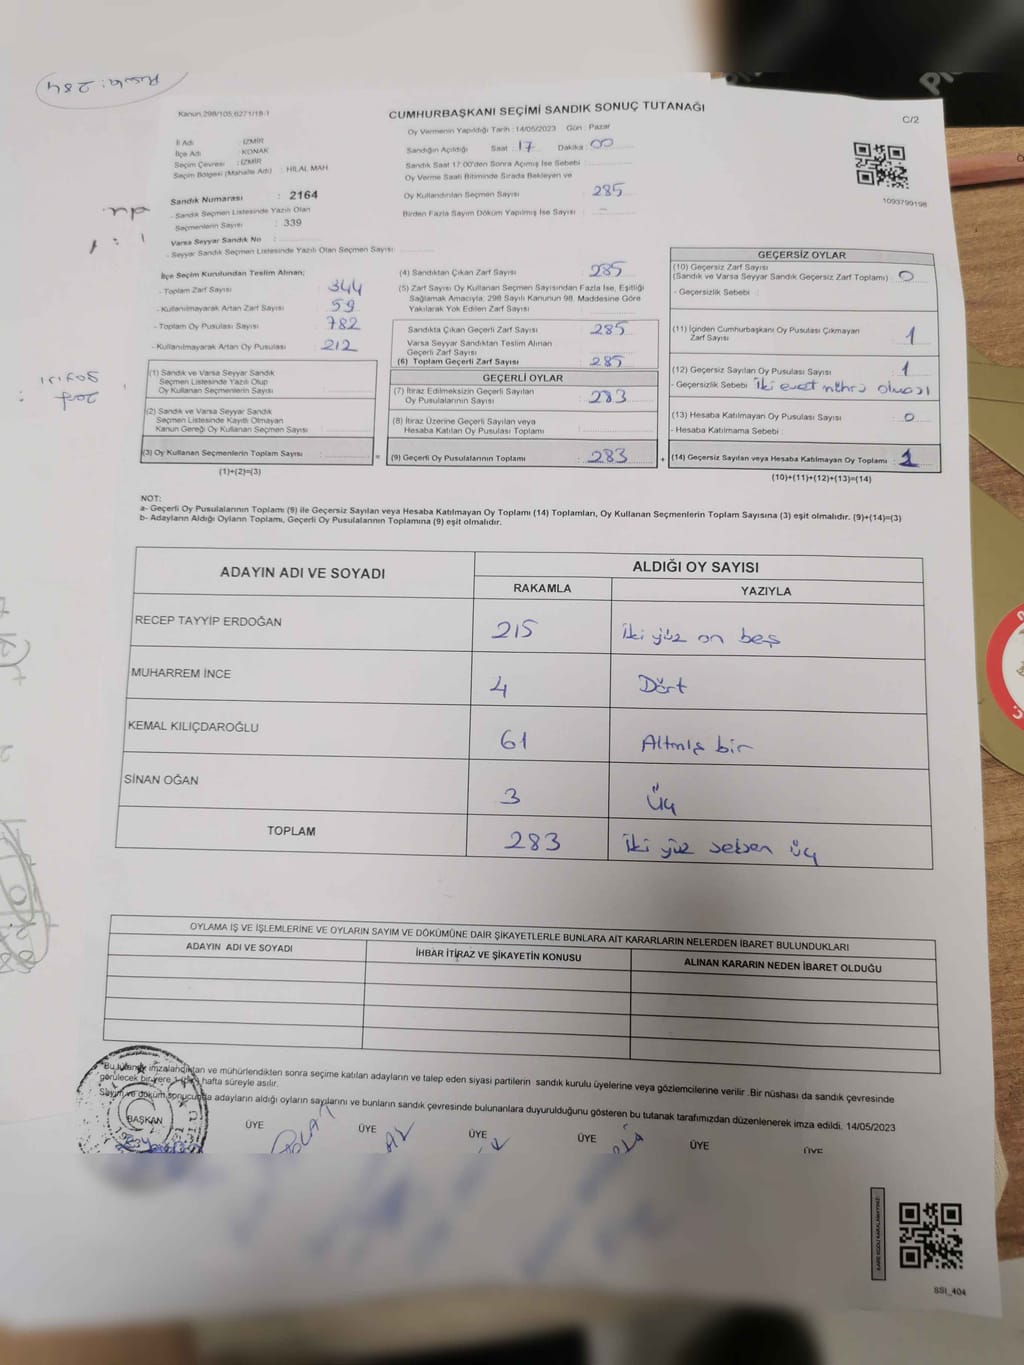 Pusula: 284
Kanun,298/105;6271/18-1
CUMHURBAŞKANI SEÇİMİ SANDIK SONUÇ TUTANAĞI
C/2
Oy Vermenin Yapıldığı Tarih : 14/05/2023 Gün : Pazar
İl Adı : İZMİR
İlçe Adı : KONAK
Seçim Çevresi : İZMİR
Seçim Bölgesi (Mahalle Adı) : HİLAL MAH
Sandığın Açıldığı Saat : 17 Dakika : 00
Sandık Saat 17:00'den Sonra Açımış İse Sebebi :
Oy Verme Saati Bitiminde Sırada Bekleyen ve
Oy Kullandırılan Seçmen Sayısı : 285
Birden Fazla Sayım Döküm Yapılmış İse Sayısı : -
1093799198
Sandık Numarası : 2164
- Sandık Seçmen Listesinde Yazılı Olan
Seçmenlerin Sayısı : 339
Varsa Seyyar Sandık No :
- Seyyar Sandık Seçmen Listesinde Yazılı Olan Seçmen Sayısı :
İlçe Seçim Kurulundan Teslim Alınan;
- Toplam Zarf Sayısı : 344
- Kullanılmayarak Artan Zarf Sayısı : 59
- Toplam Oy Pusulası Sayısı : 782
- Kullanılmayarak Artan Oy Pusulası : 212
(1) Sandık ve Varsa Seyyar Sandık
Seçmen Listesinde Yazılı Olup
Oy Kullanan Seçmenlerin Sayısı :
(2) Sandık ve Varsa Seyyar Sandık
Seçmen Listesinde Kayıtlı Olmayan
Kanun Gereği Oy Kullanan Seçmen Sayısı :
(3) Oy Kullanan Seçmenlerin Toplam Sayısı :
(1)+(2)=(3)
(4) Sandıktan Çıkan Zarf Sayısı : 285
(5) Zarf Sayısı Oy Kullanan Seçmen Sayısından Fazla İse, Eşitliği
Sağlamak Amacıyla; 298 Sayılı Kanunun 98. Maddesine Göre
Yakılarak Yok Edilen Zarf Sayısı :
Sandıkta Çıkan Geçerli Zarf Sayısı : 285
Varsa Seyyar Sandıktan Teslim Alınan
Geçerli Zarf Sayısı :
(6) Toplam Geçerli Zarf Sayısı : 285
GEÇERLİ OYLAR
(7) İtiraz Edilmeksizin Geçerli Sayılan
Oy Pusulalarının Sayısı : 283
(8) İtiraz Üzerine Geçerli Sayılan veya
Hesaba Katılan Oy Pusulası Toplamı :
(9) Geçerli Oy Pusulalarının Toplamı : 283
GEÇERSİZ OYLAR
(10) Geçersiz Zarf Sayısı
(Sandık ve Varsa Seyyar Sandık Geçersiz Zarf Toplamı) : 0
- Geçersizlik Sebebi :
(11) İçinden Cumhurbaşkanı Oy Pusulası Çıkmayan
Zarf Sayısı : 1
(12) Geçersiz Sayılan Oy Pusulası Sayısı : 1
- Geçersizlik Sebebi : İki evet mührü olması
(13) Hesaba Katılmayan Oy Pusulası Sayısı : 0
- Hesaba Katılmama Sebebi :
(14) Geçersiz Sayılan veya Hesaba Katılmayan Oy Toplamı :
(10)+(11)+(12)+(13)=(14)
NOT:
a- Geçerli Oy Pusulalarının Toplamı (9) ile Geçersiz Sayılan veya Hesaba Katılmayan Oy Toplamı (14) Toplamları, Oy Kullanan Seçmenlerin Toplam Sayısına (3) eşit olmalıdır. (9)+(14)=(3)
b- Adayların Aldığı Oyların Toplamı, Geçerli Oy Pusulalarının Toplamına (9) eşit olmalıdır.
ADAYIN ADI VE SOYADI ALDIĞI OY SAYISI
RAKAMLA YAZIYLA
RECEP TAYYİP ERDOĞAN 215 İki yüz on beş
MUHARREM İNCE 4 Dört
KEMAL KILIÇDAROĞLU 61 Altmış bir
SİNAN OĞAN 3 Üç
TOPLAM 283 İki yüz seksen üç
OYLAMA İŞ VE İŞLEMLERİNE VE OYLARIN SAYIM VE DÖKÜMÜNE DAİR ŞİKAYETLERLE BUNLARA AİT KARARLARIN NELERDEN İBARET BULUNDUKLARI
ADAYIN ADI VE SOYADI İHBAR İTİRAZ VE ŞİKAYETİN KONUSU ALINAN KARARIN NEDEN İBARET OLDUĞU
"Bu tutanak imzalandıktan ve mühürlendikten sonra seçime katılan adayların ve talep eden siyasi partilerin sandık kurulu üyelerine veya gözlemcilerine verilir .Bir nüshası da sandık çevresinde
görülecek bir yere 1 (bir) hafta süreyle asılır.
Sayım ve döküm sonucunda adayların aldığı oyların sayılarını ve bunların sandık çevresinde bulunanlara duyurulduğunu gösteren bu tutanak tarafımızdan düzenlenerek imza edildi. 14/05/2023
BAŞKAN ÜYE ÜYE ÜYE ÜYE ÜYE ÜYE
SSI_404